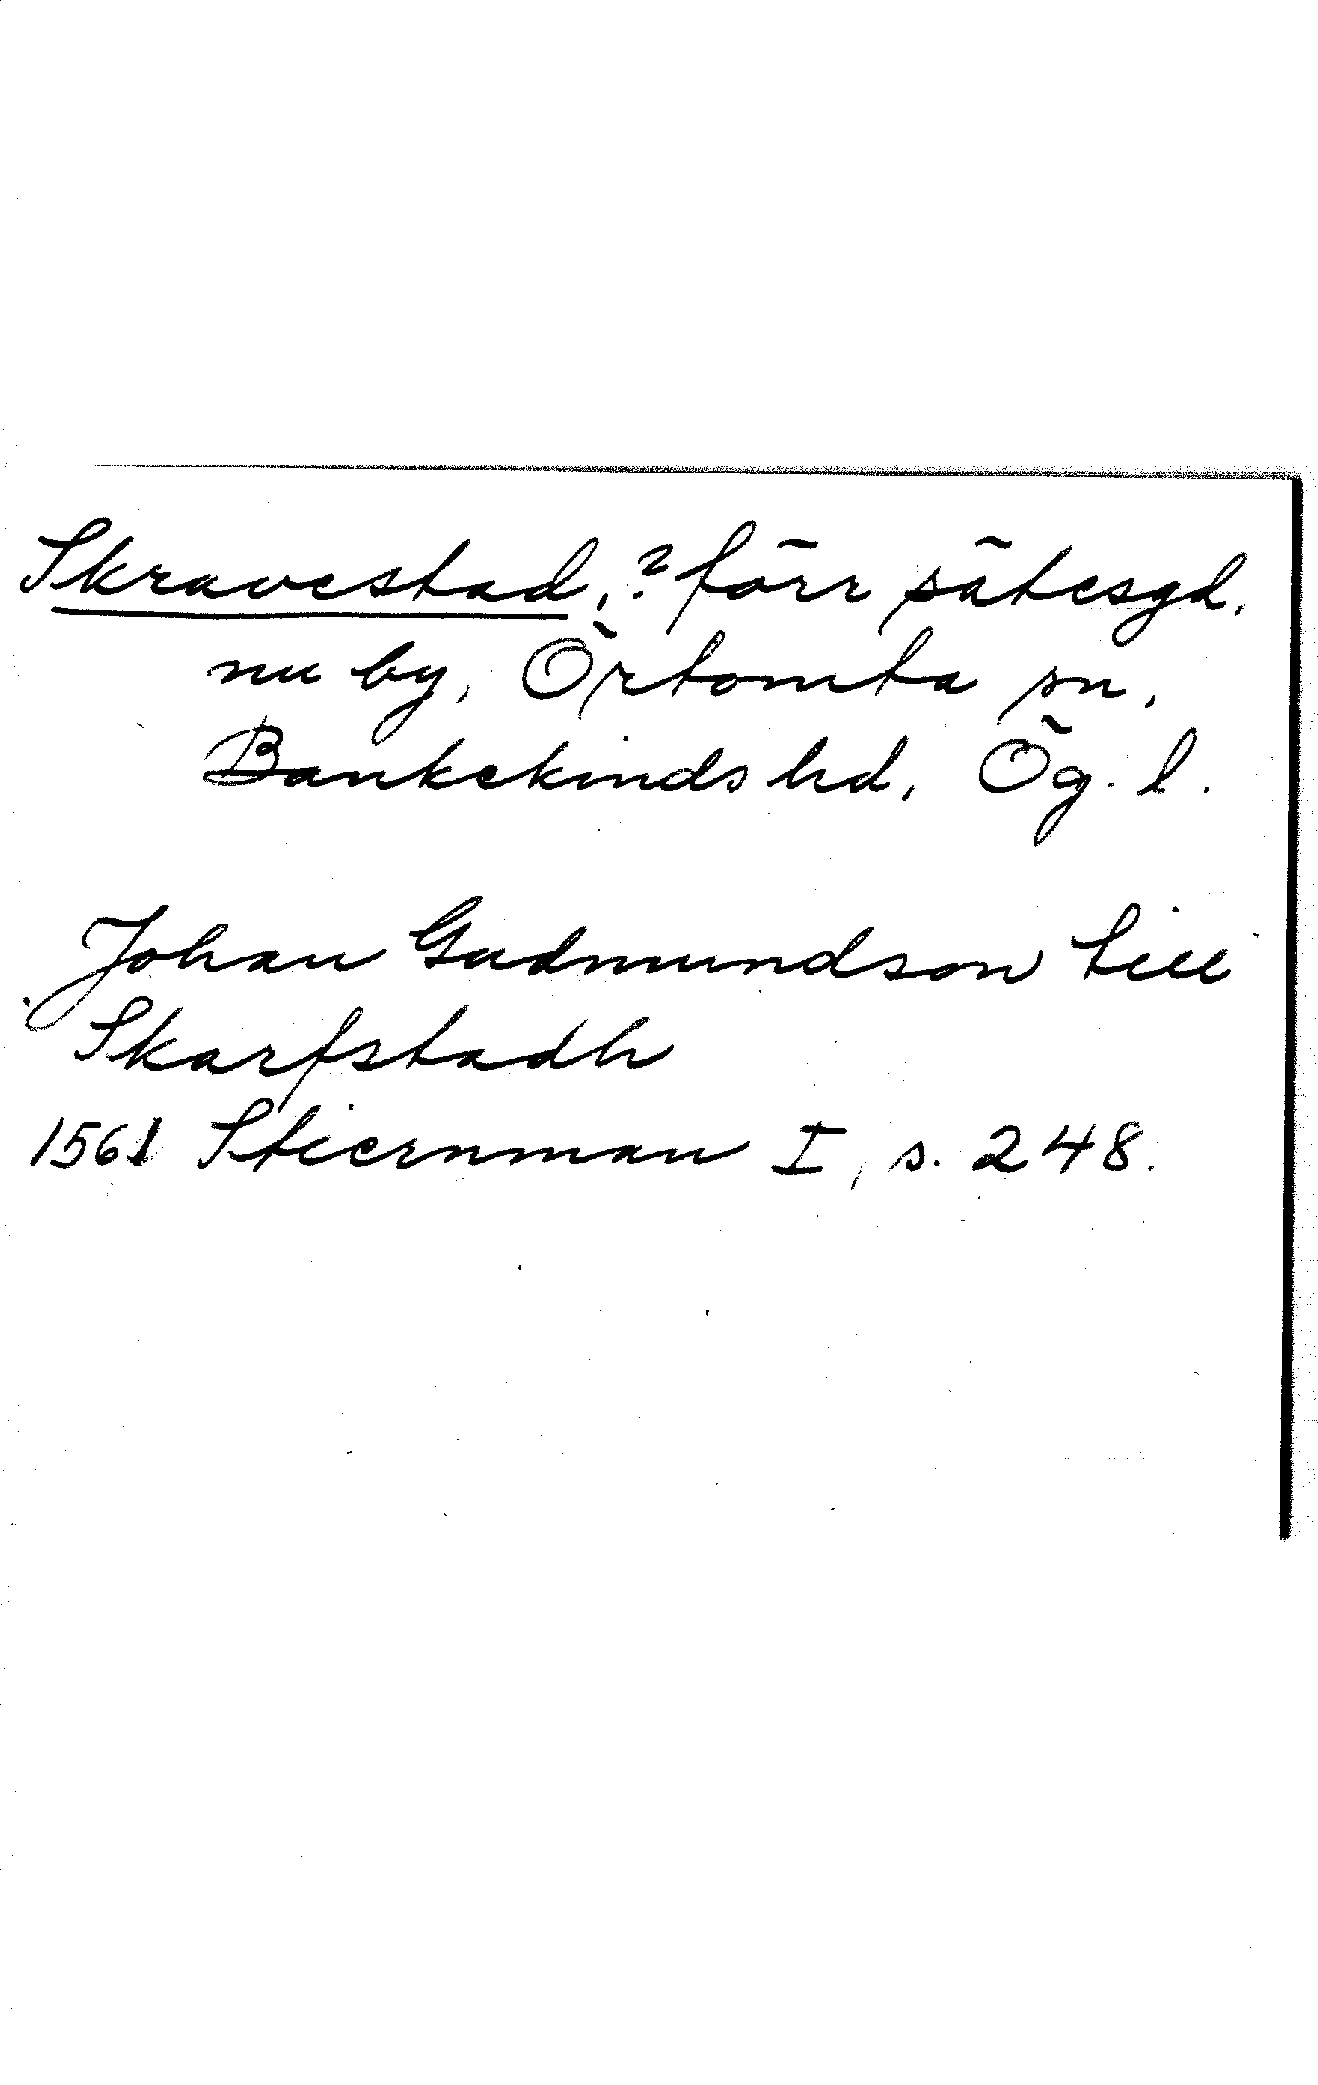 Skravestad,? förr sätesgd,
nu by, Örtomta sn,
Bankekinds hd, Ög. l.
Johan Gudmundson till
Skarfstadh
1561 Stiernman I, s. 248.